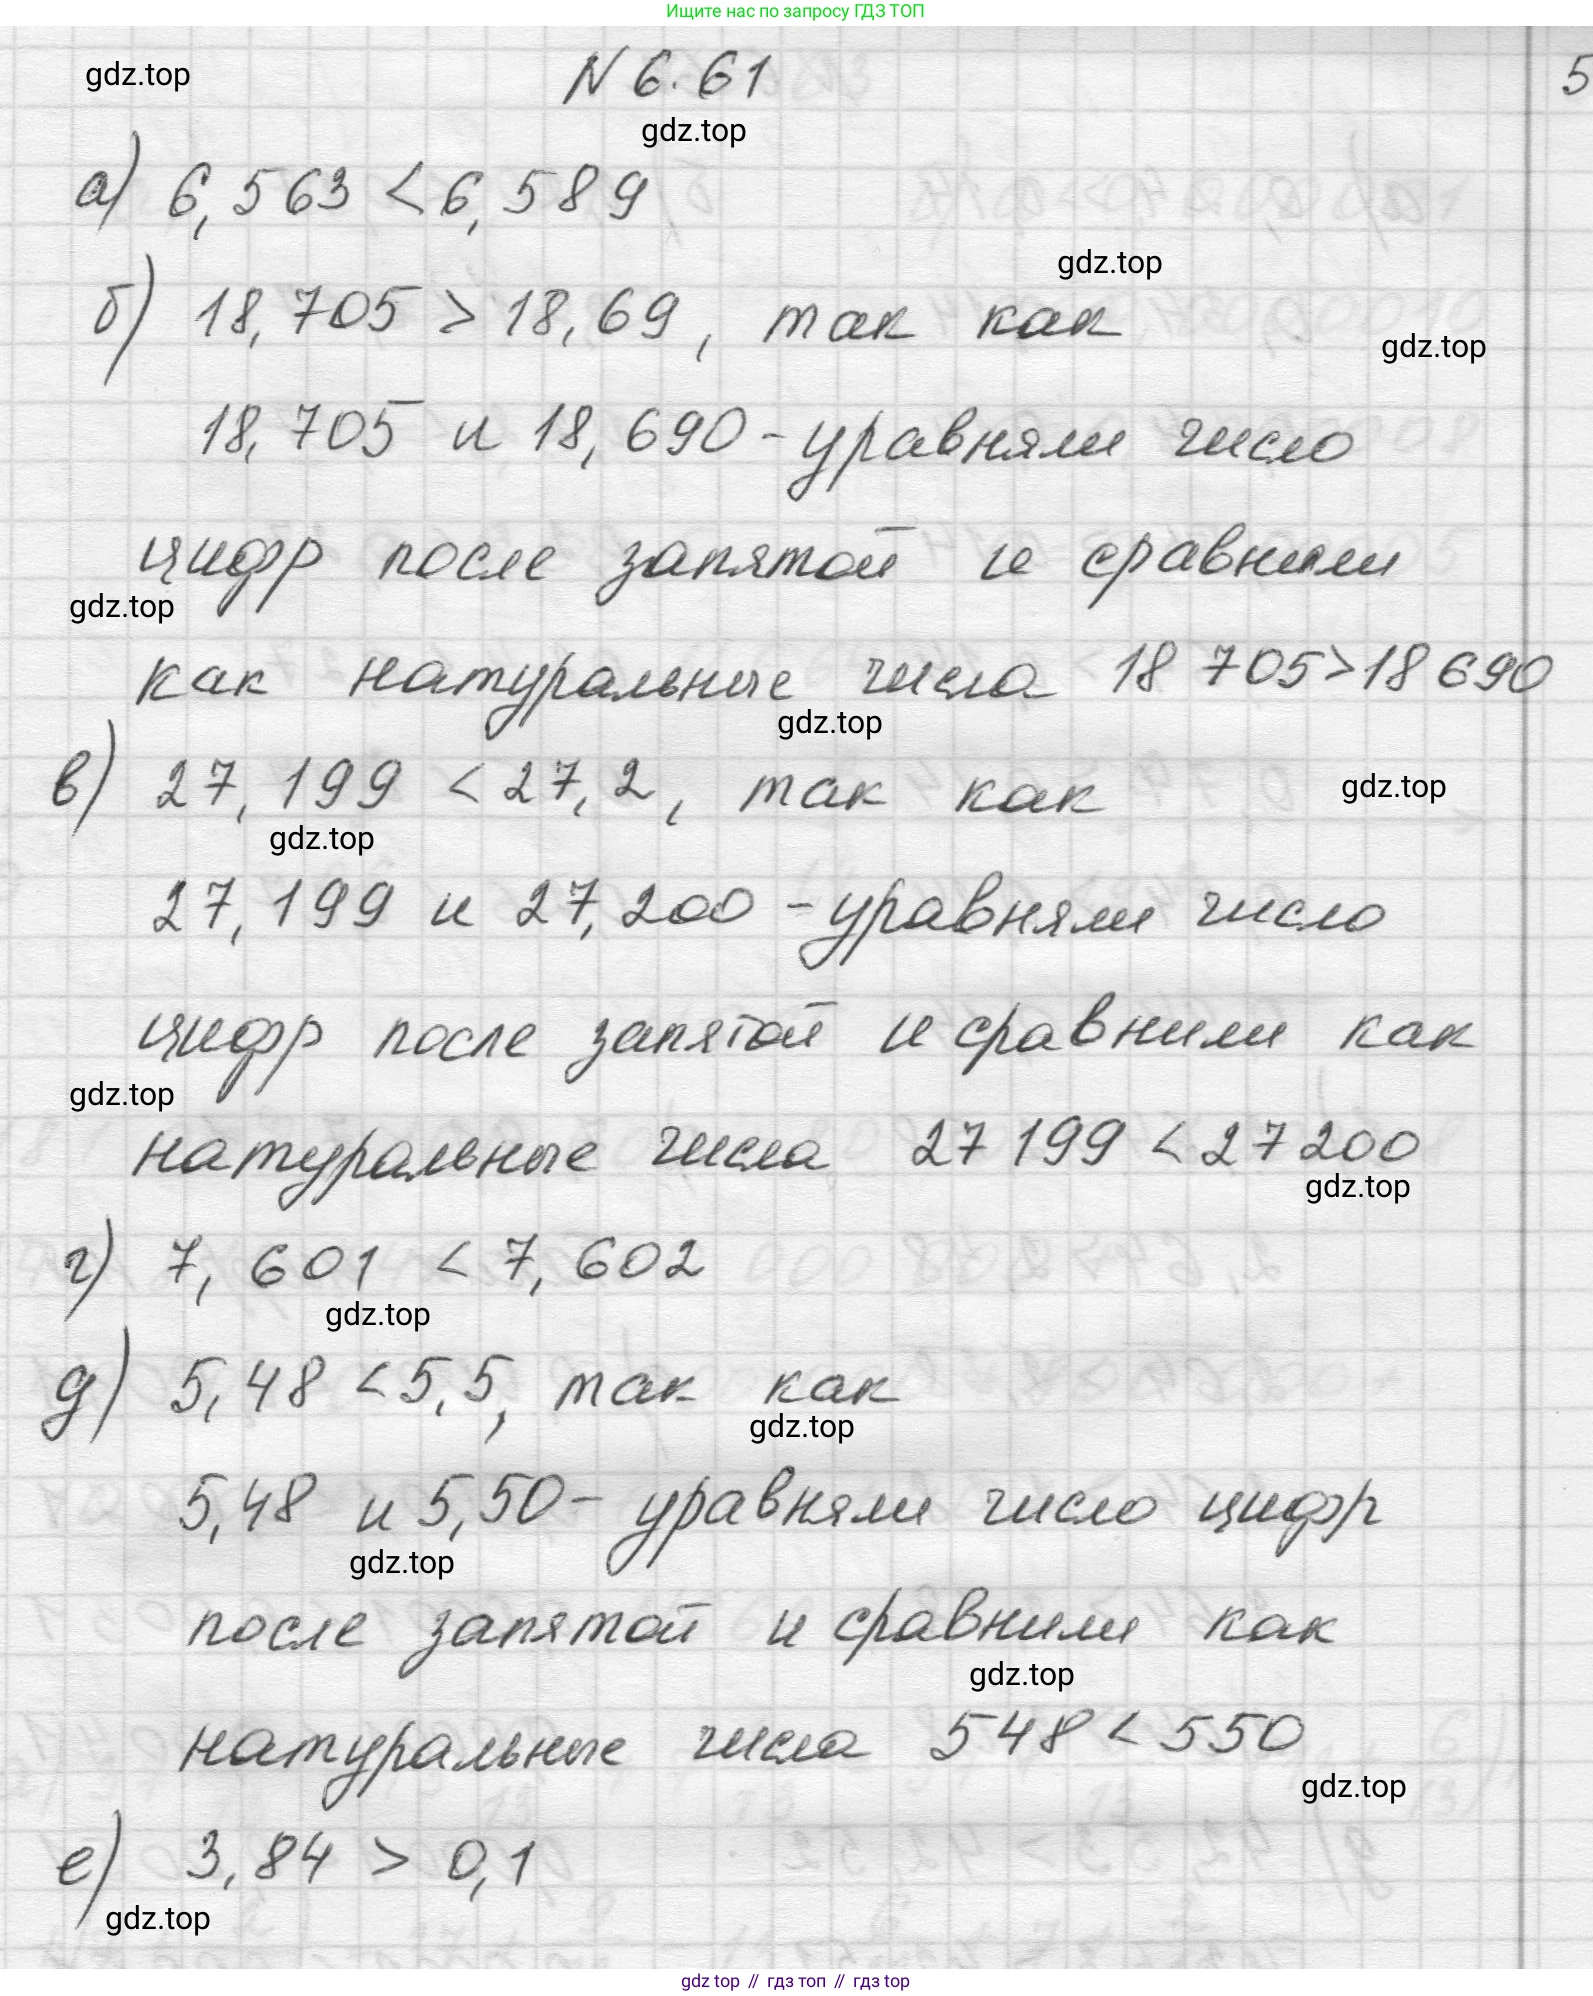 Ищите нас по запросу ГДЗ ТОП
N 6.61
5
gdz.top
gdz.top
а) 6,563 < 6,589
gdz.top
б) 18,705 > 18,69, так как
gdz.top
18,705 и 18,690 - уравняли число
цифр после запятой и сравнили
gdz.top
как натуральные числа 18 705 > 18 690
gdz.top
в) 27,199 < 27,2, так как
gdz.top
gdz.top
27,199 и 27,200 - уравняли число
цифр после запятой и сравнили как
gdz.top
натуральные числа 27 199 < 27 200
gdz.top
г) 7,601 < 7,602
gdz.top
д) 5,48 < 5,5, так как
gdz.top
5,48 и 5,50 - уравняли число цифр
gdz.top
после запятой и сравнили как
gdz.top
натуральные числа 548 < 550
gdz.top
е) 3,84 > 0,1
gdz.top
gdz top // гдз топ // gdz top